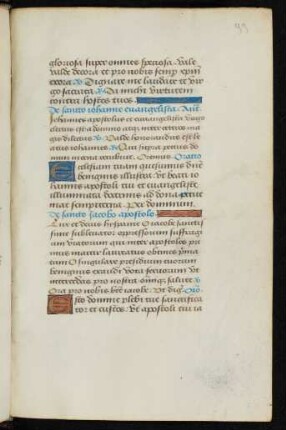 gloriosa super omnes speciosa. Vale
valde decora et pro nobis semp xpm
exora Dignare me laudare te vir
go sacrata Da michi virtutem
contra hostes tuos.
De sancto iohanne euangelista. Ant.
Iohannes apostolus et euangelista virgo
electus est a domino atq; inter ceteros ma
gis dilectus Valde honorandus est be
atus iohannes Qui supra pectus do
mini in cena recubuit. Oremus. Oratio
Ecclesiam tuam quesumus dne
benignus illustra ut beati io
hannis apostoli tui et euangeliste
illuminata doctrinis ad dona perue
niat sempiterna. Per dominum.
De sancto iacobo apostolo
Lux et decus hyspanie O iacobe sancti
sime
primus inter apostolos
mus martir laureatus
O singulare presidium
benigniss exaudi vota seruorum et
intercede pro nostra omniq; salute
Ora pro nobis bte iacobe. Ut dig. Oro.
Esto domine plebi tue sanctifica
tor et custos. Ut apostoli tui ia